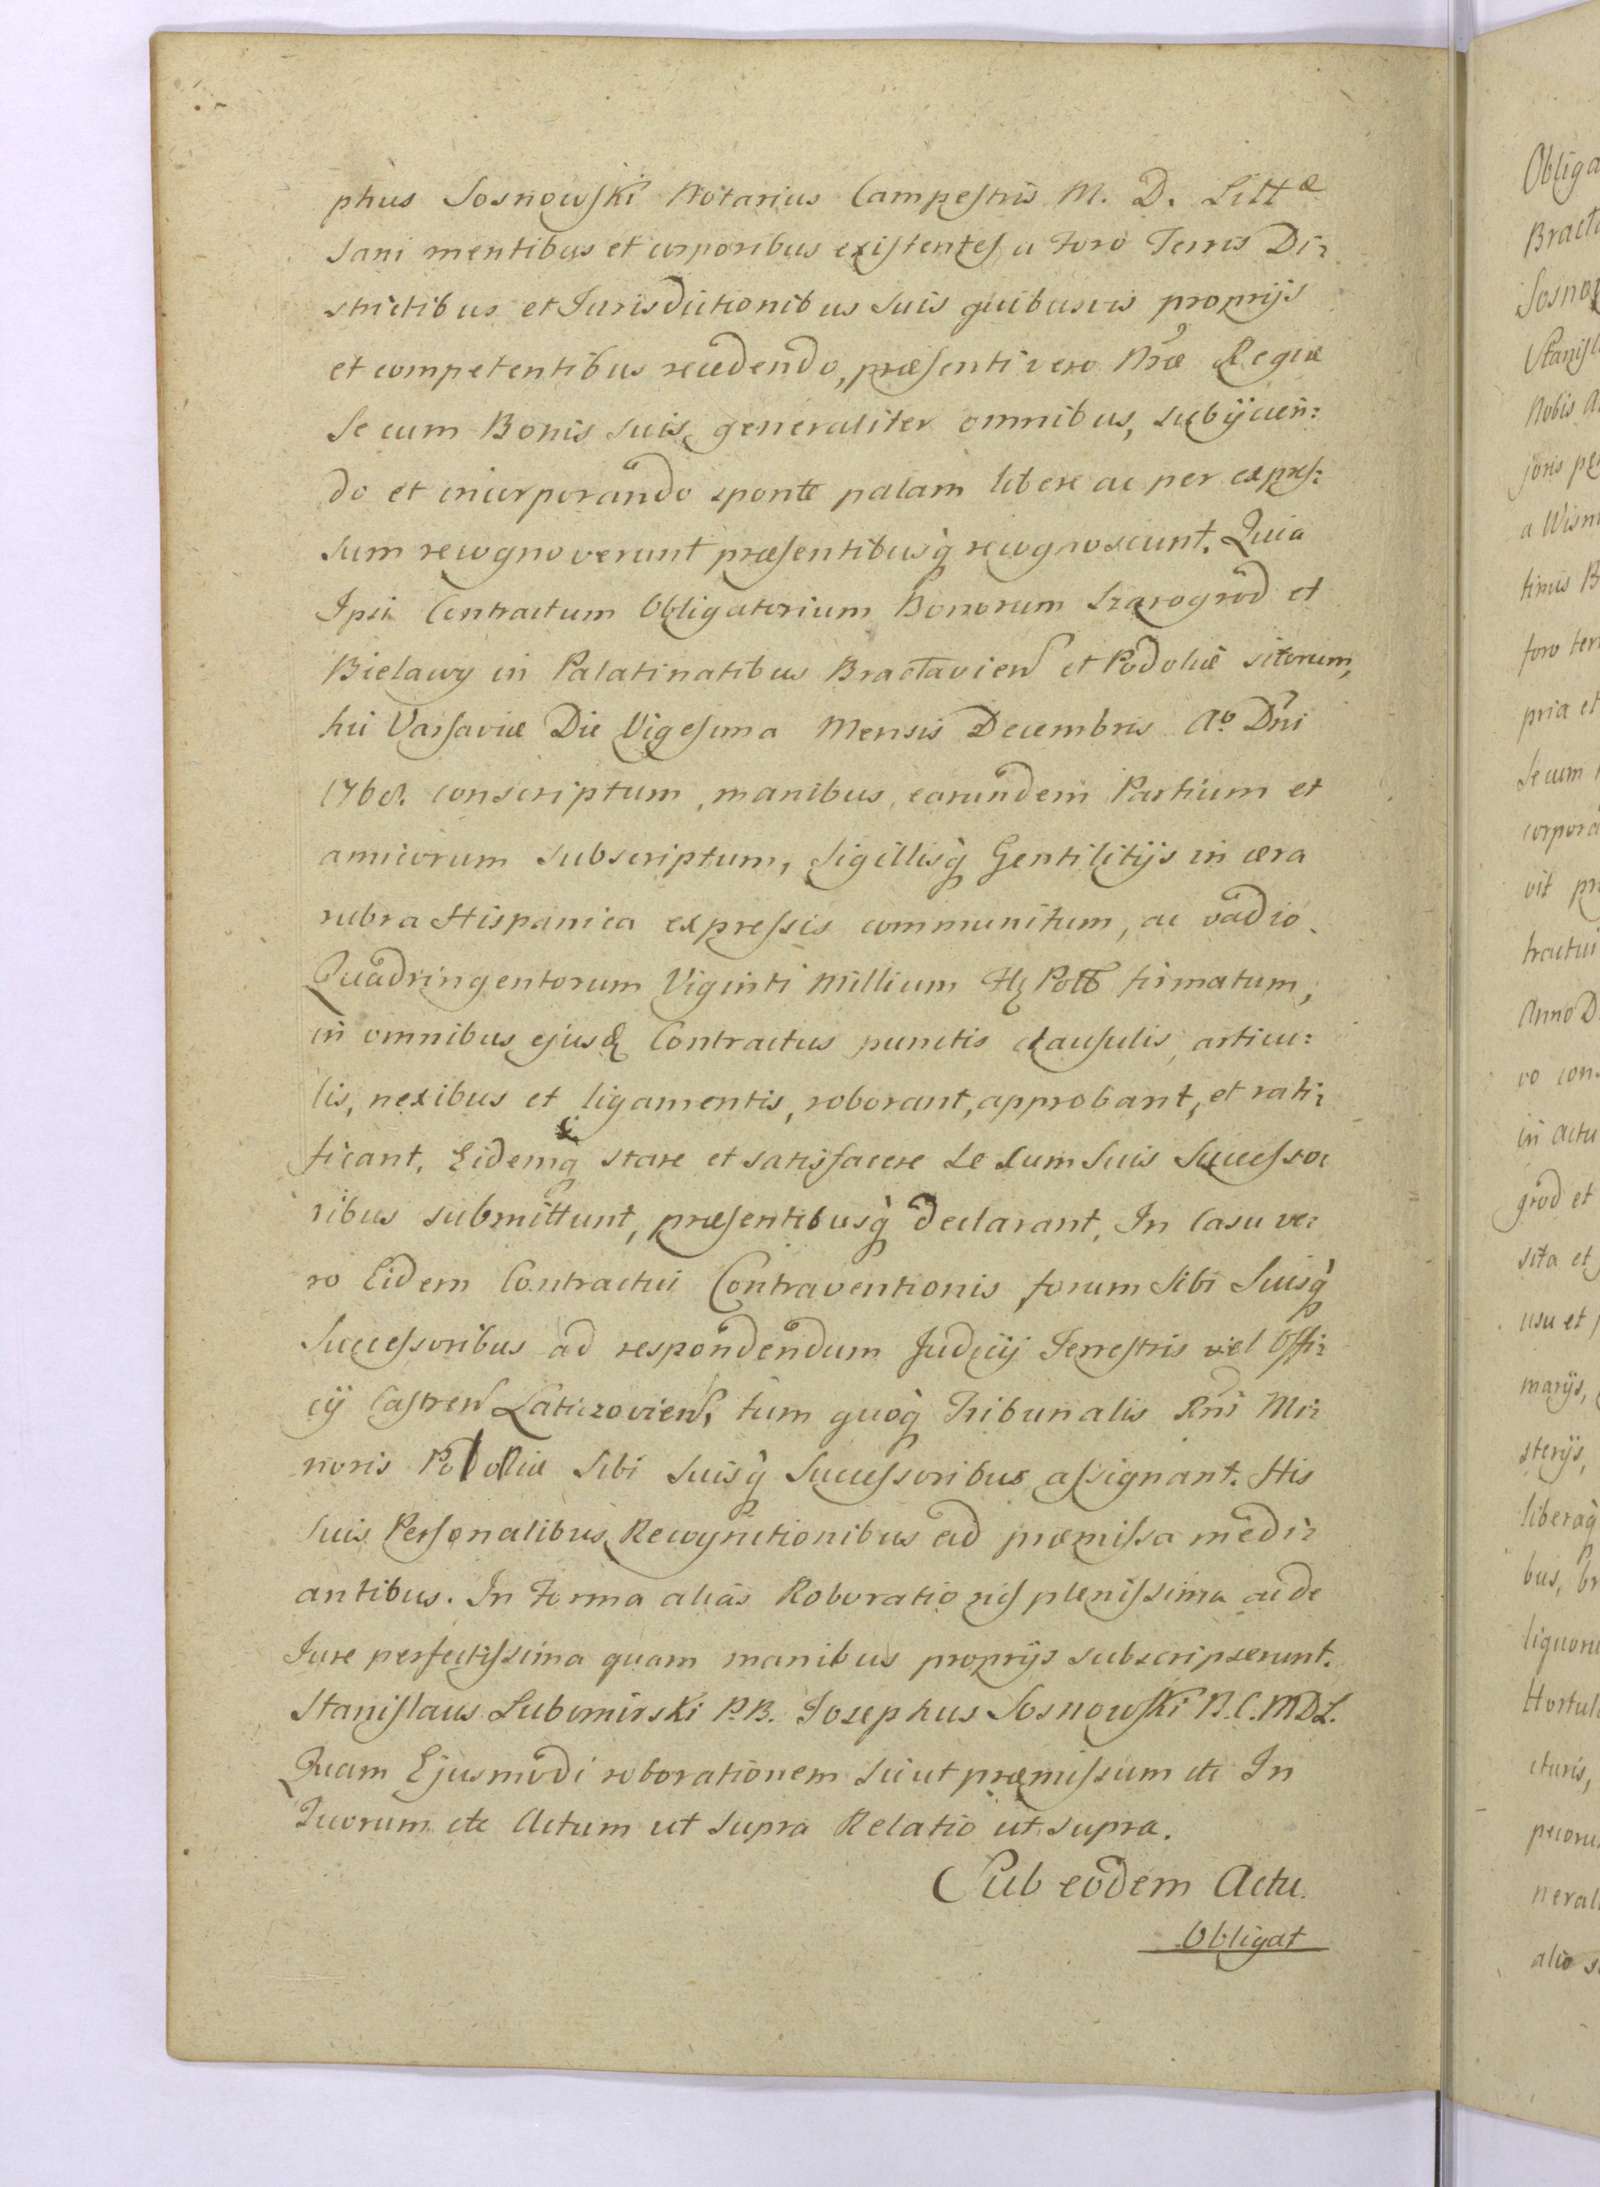 phus Sosnowski Notarius Campestris M. D. Litt æ
Sani mentibus et corporibus existentes a Foro Terris Di:
strictibus et Jurisdictionibus Suis quibusvis proprijs
et competentibus recedendo, præsenti vero Nræ Regiæ
Se cum Bonis Suis generaliter omnibus, subijcien:
do et incorporando sponte palam libere ac per expres:
sum recognoverunt præsentibusq recognoscunt. Quia
Ipsi Contractum Obligatorium Bonorum Szarogrod et
Bielawy in Palatinatibus Bractavien et Podoliæ sitorum,
hic Varsaviæ Die Vigesima Mensis Decembris Ao Dni
1768. conscriptum, manibus earundem Partium et
amicorum subscriptum, Sigillisq Gentilitijs in cera
rubra Hispanica expressis communitum, ac vadio
Quadringentorum Viginti Millium Flz Poll firmatum,
in omnibus ejusd Contractus punctis clausulis, articu:
lis, nexibus et ligamentis, roborant, approbant, et rati:
ficant, Eidemq stare et satisfacere se cum Suis Successo:
ribus submittunt, præsentibusq declarant, In Casu ve:
ro Eidem Contractui Contraventionis forum Sibi Suisq
Successoribus ad respondendum Judicij Terrestris vel Offi:
cij Castren Laticzovien, tum quoq Tribunalis Rni Mi:
noris Poloniæ Sibi Suisq Successoribus assignant. His
Suis Personalibus Recognitionibus ad præmissa medi:
antibus. In Forma alias Roborationis plenissima ac de
Jure perfectissima quam manibus proprijs subscripserunt.
Stanislaus Lubomirski P.B. Josephus Sosnowski P.C.M.D.L.
Quam Ejusmodi roborationem sicut præmissum etc In
Quorum etc Actum ut Supra Relatio ut supra.
Sub eodem Actu.
Obligat
Obliga
Bracta
Sosnow
Stanisl
Nobis
joris
a Wism
timis B
foro ter
pria et
Se cum
corpora
vit
Anno D
ro cons
in Actu
grod et
sita et
usu et
marijs,
sterijs,
liberaq
bus,
liquoru
Hortul
cturis,
pecoru
neral
alio